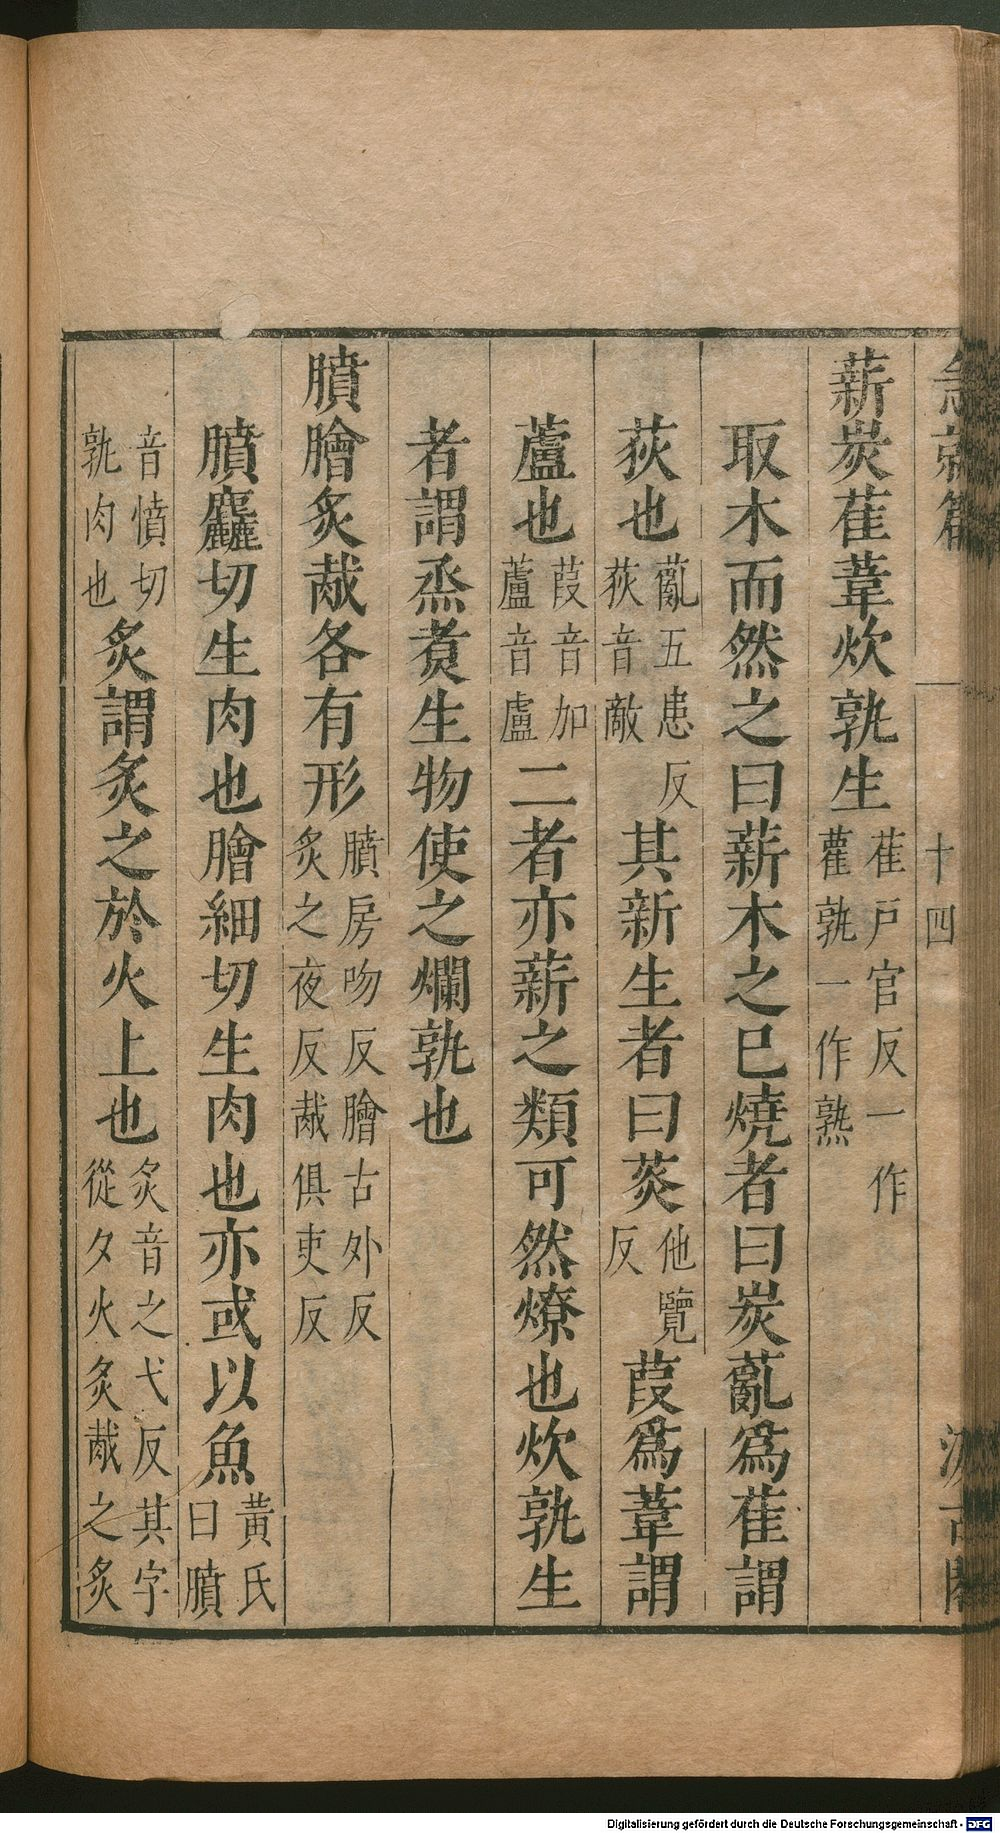 急就篇 十四 汲古閣
薪炭萑葦炊孰生萑戸官反一作雚孰一作熟
取木而然之曰薪木之已燒者曰炭薍爲萑謂
荻也薍五患反荻音敵其新生者曰菼他覽反葭爲葦謂
蘆也葭音加蘆音盧二者亦薪之類可然燎也炊孰生
者謂烝煑生物使之爛孰也
膹膾炙胾各有形膹房吻反膾古外反炙之夜反胾俱吏反
膹麤切生肉也膾細切生肉也亦或以魚黃氏曰膹
音憤切孰肉也炙謂炙之於火上也炙音之弋反其字從夕火炙胾之炙
Digitalisierung gefördert durch die Deutsche Forschungsgemeinschaft - DFG